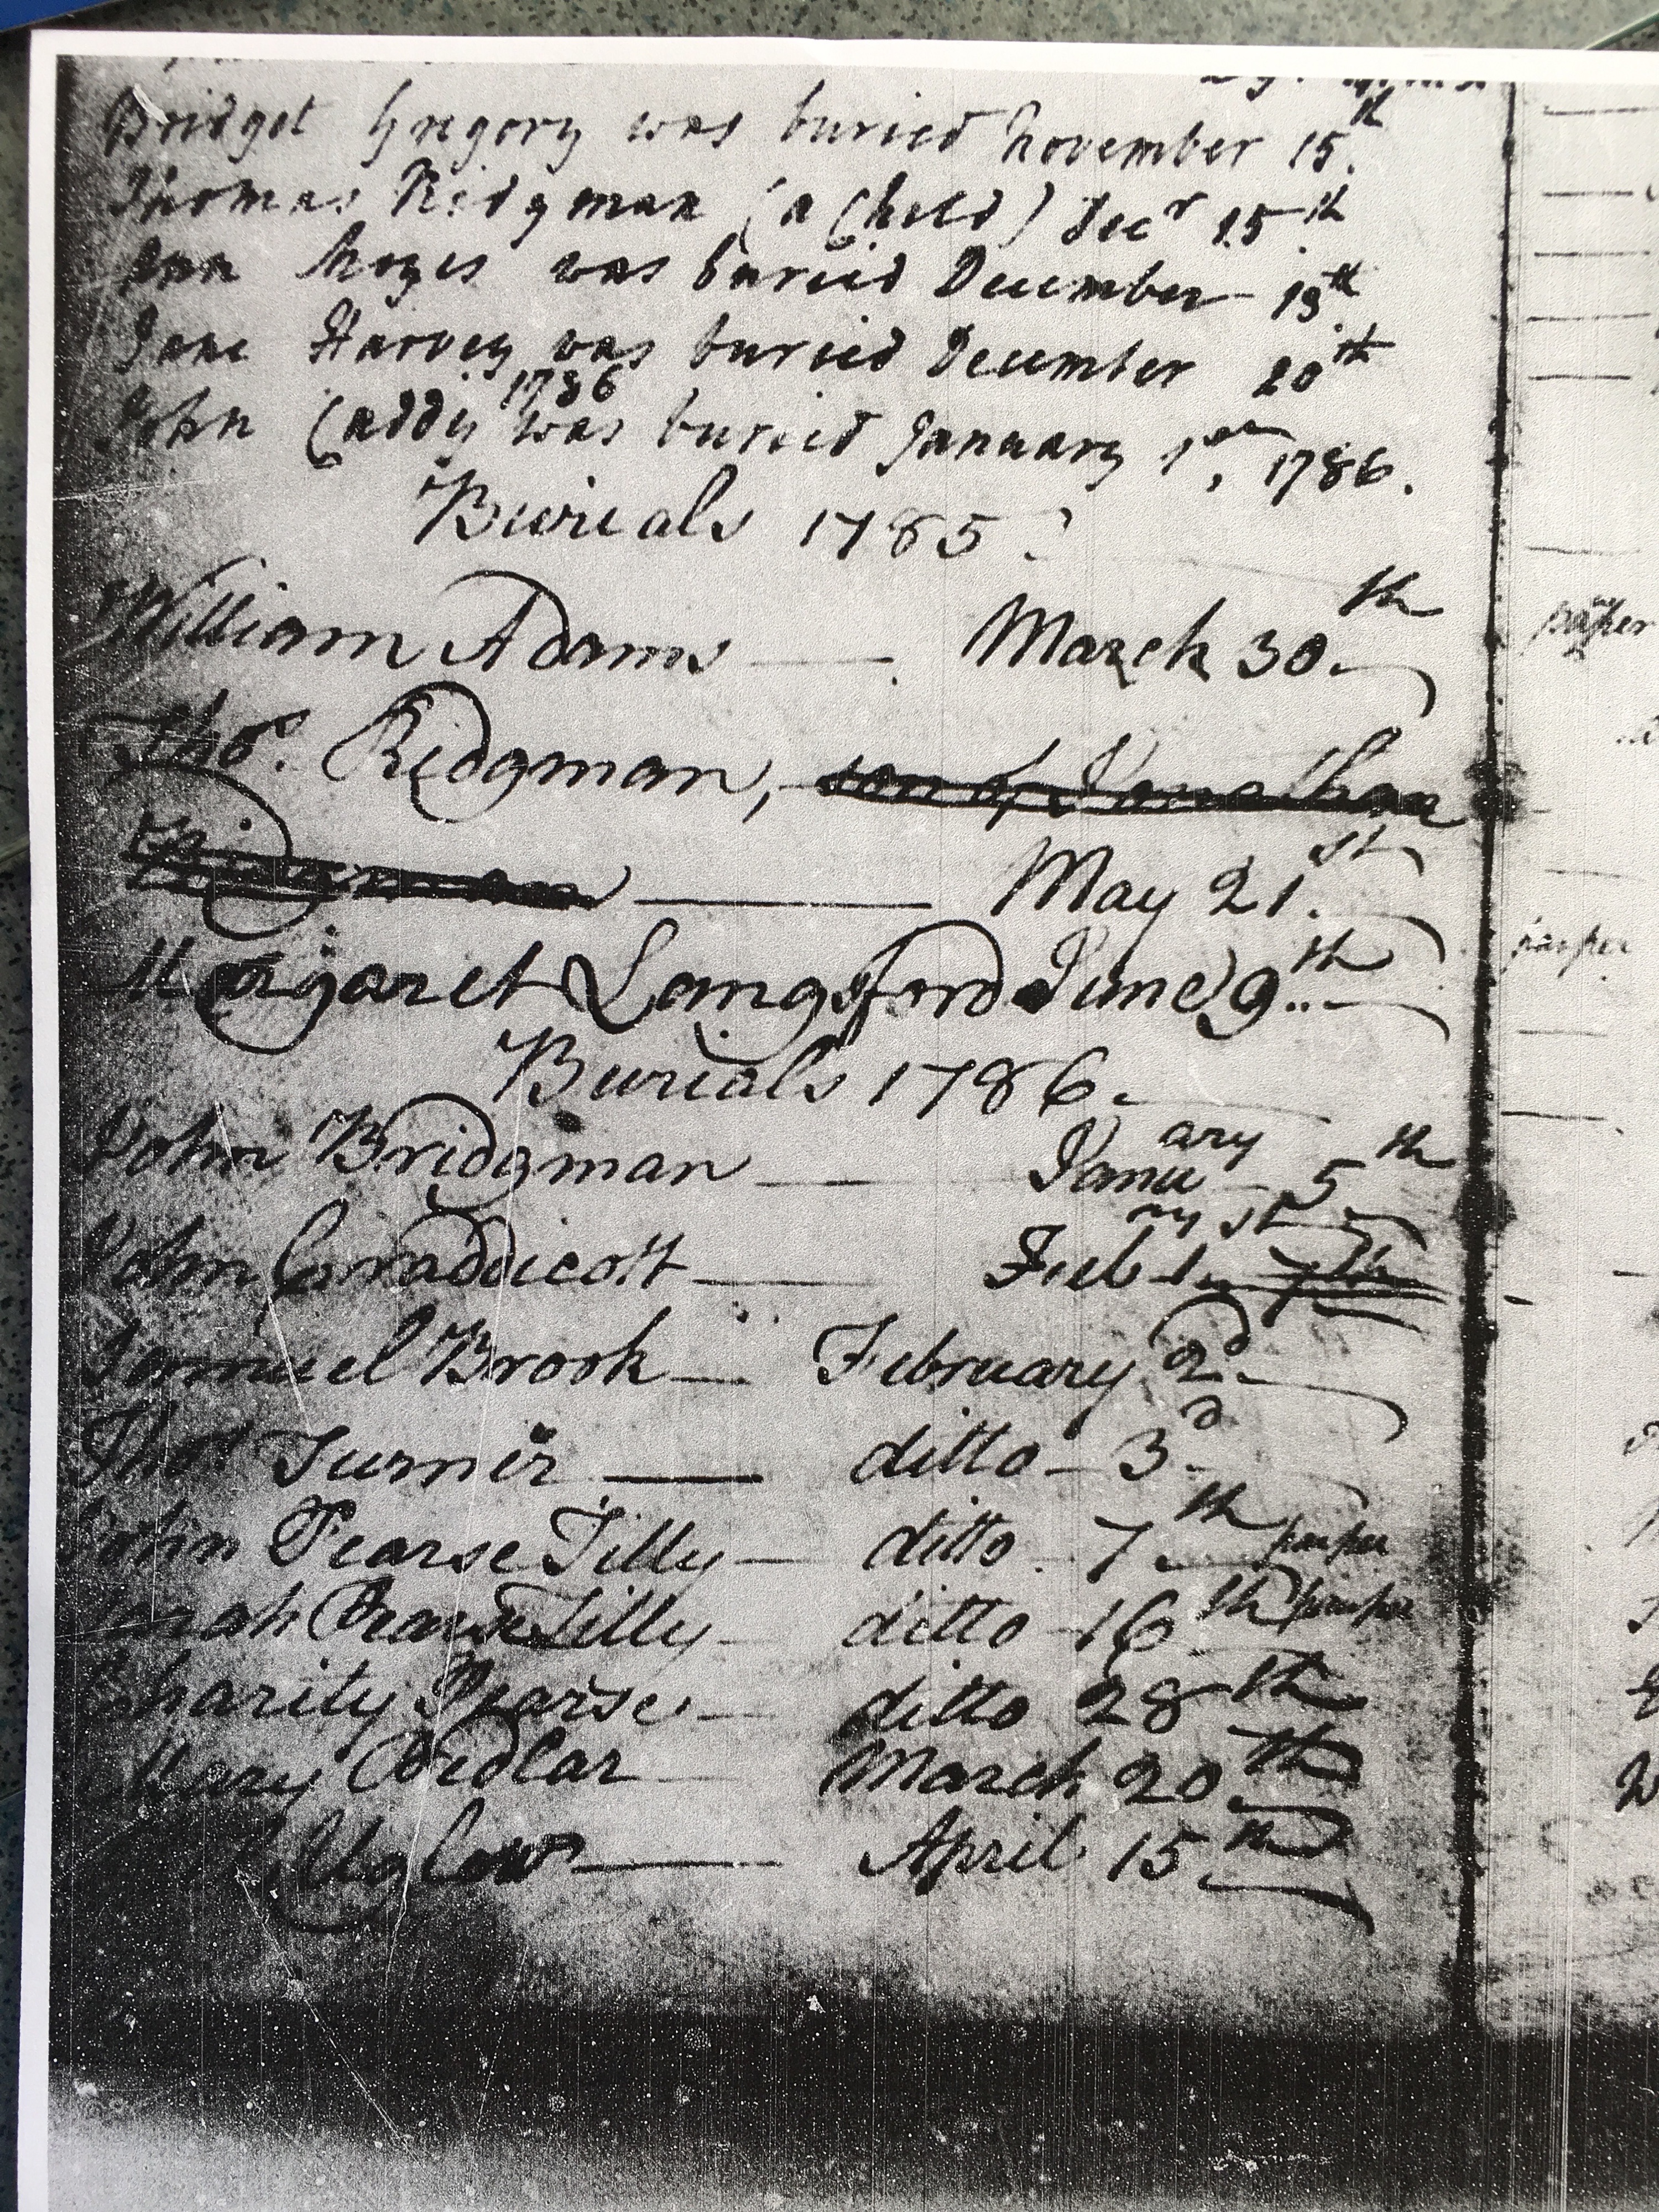 Bridget Gregory was buried November 15th.
Thomas Ridgman (a Child) Decr 15th
Ann Moyes was buried December 19th
Jane Harvey was buried December 20th
1786
John Caddy was buried January 1st, 1786.
Burials 1785.
William Adams March 30th
Thos. Ridgman, son of Jonathan
Ridgman May 21st.
Margaret Langsford June 9th
Burials 1786.
John Bridgman January 5th
John Braddicott Feb ry 1st 7th
Samuel Brook February 2d
Thos Turner ditto 3d
John Pearse Tilly ditto 7th pauper
Pearse Tilly ditto 16th pauper
Charity Pearse ditto 28th
Mary Pedlar March 20th
Uglow April 15th
pauper
pauper